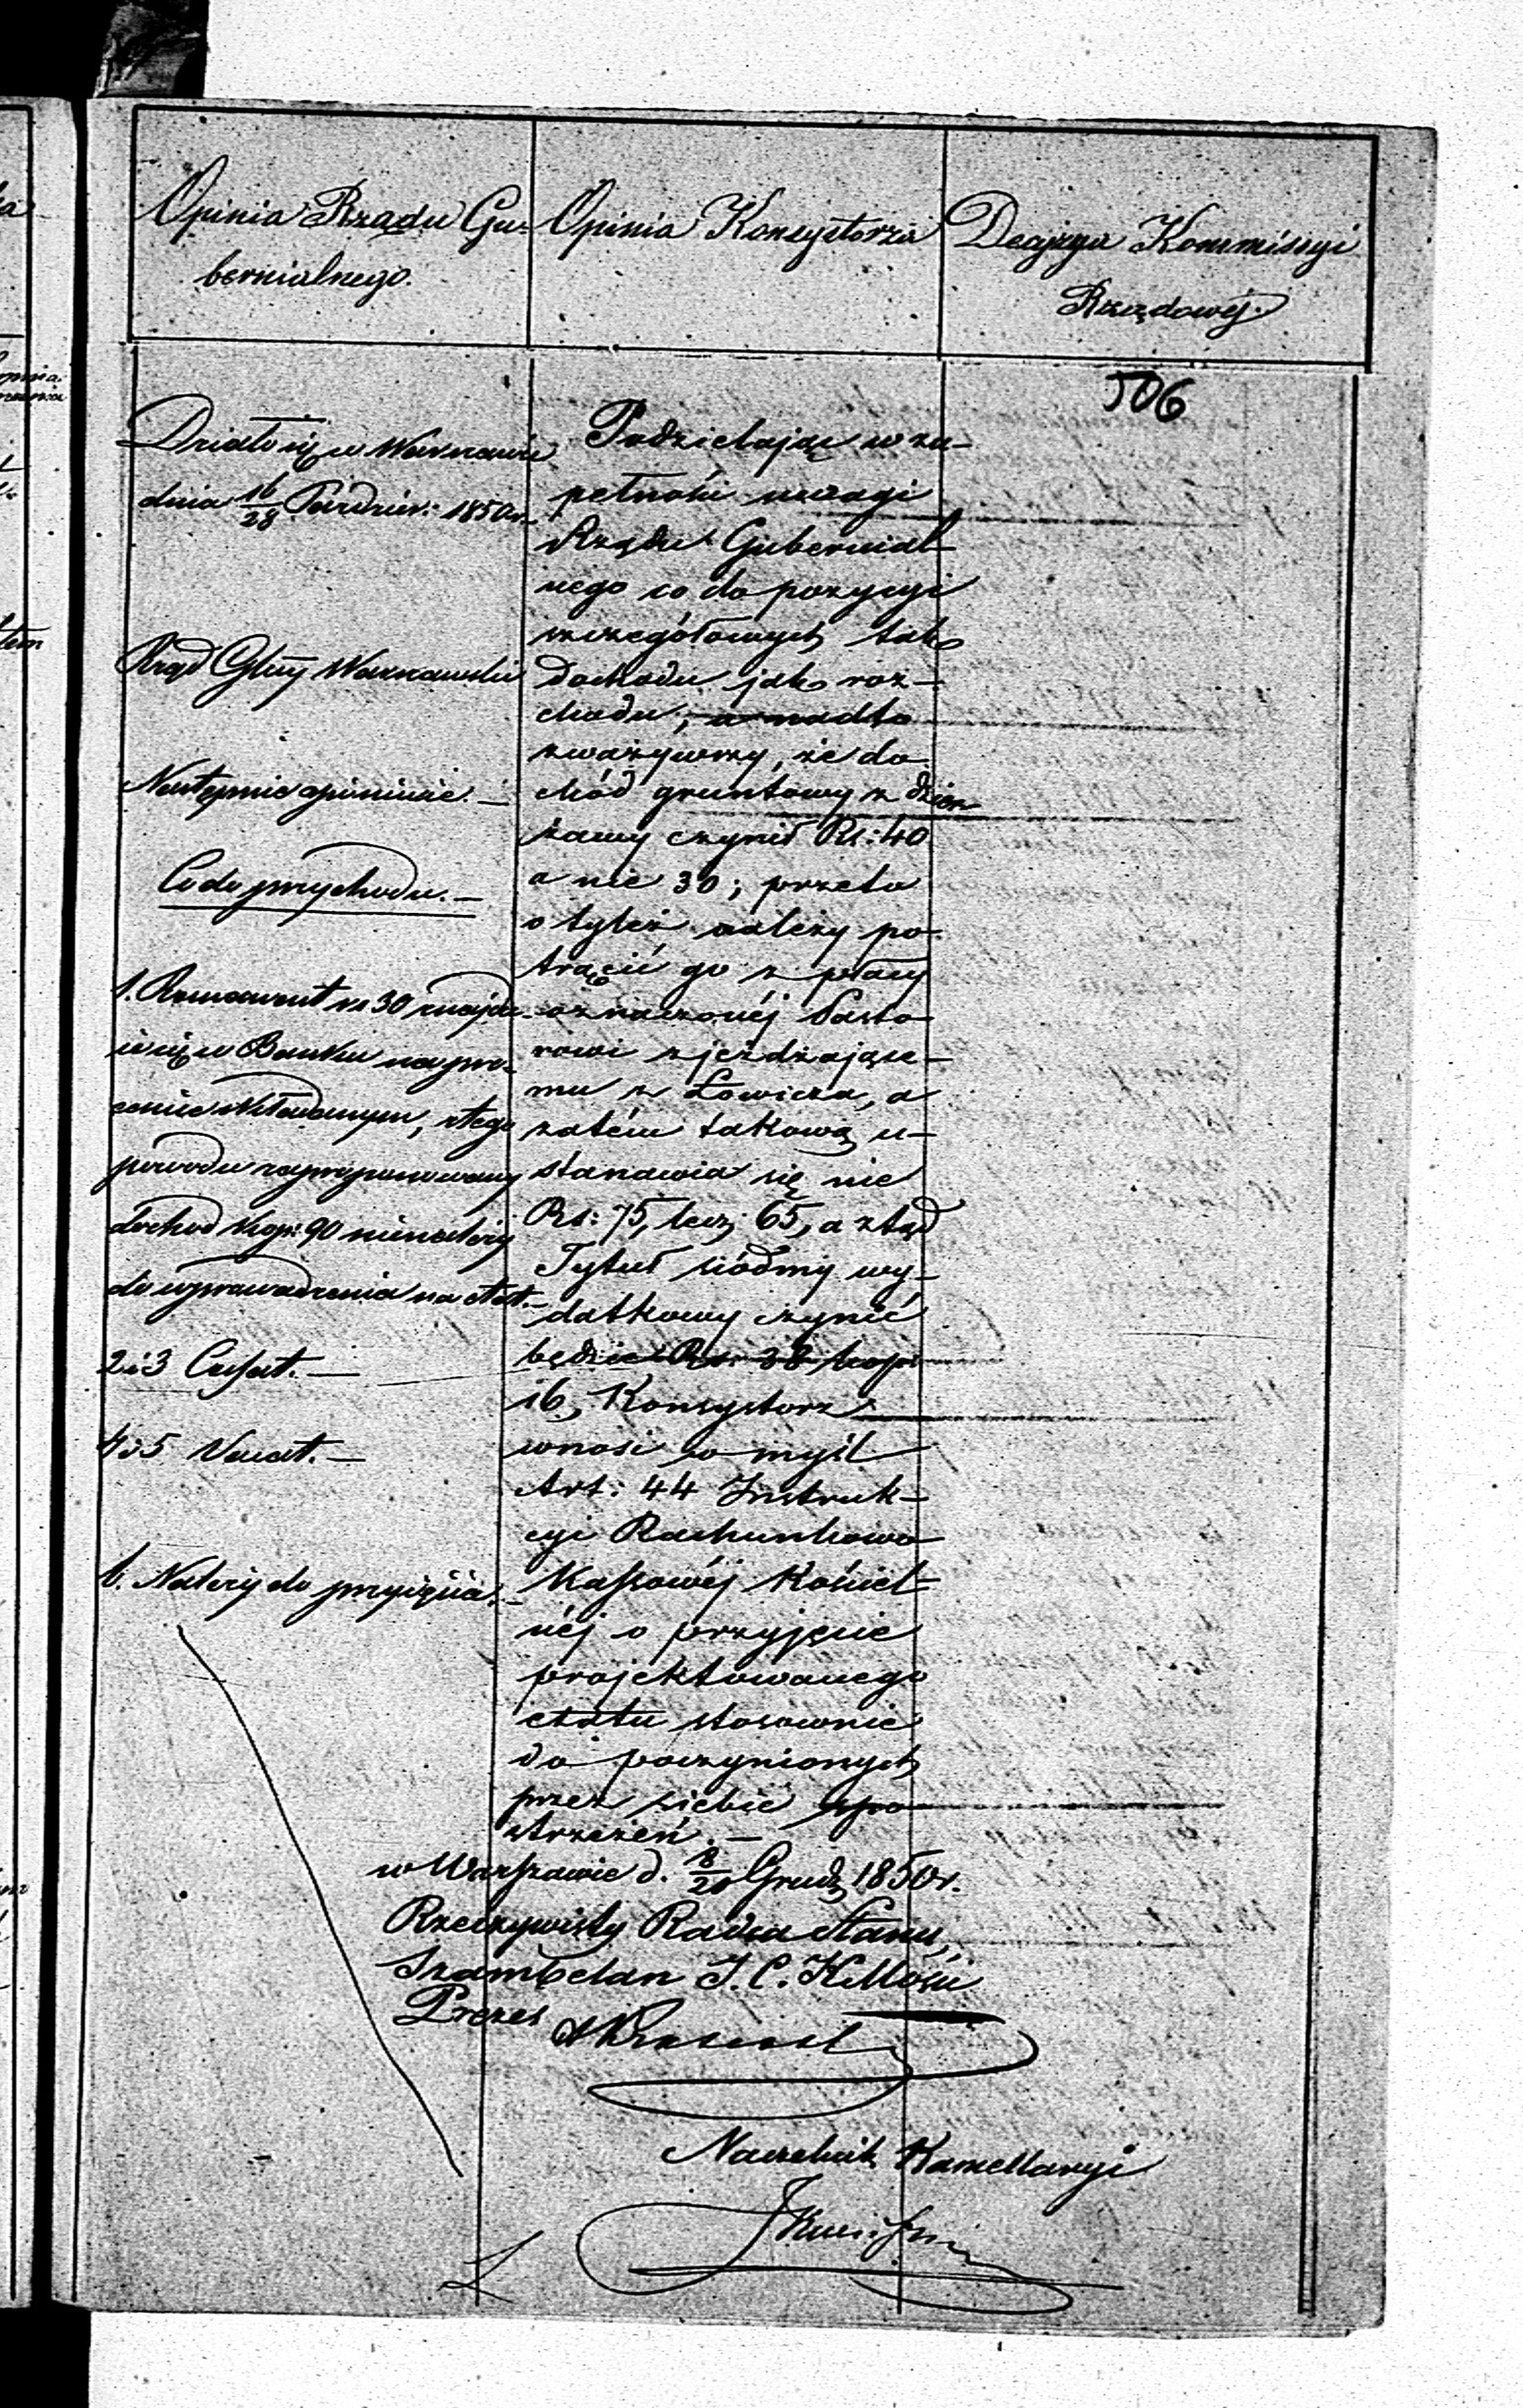 Opinia Rządu Gu-
bernialnego.
Opinia Konsystorza
Decyzya Kommissyi
Rządowéj.
506
Działo się w Warszawie
dnia 16/28 Paździer: 1850 r.
Rząd Gltny Warszawski
Następnie opiniuie. —
Co do przychodu. —
1. Remanent rs 30 znajdu-
ie się w Banku na pro-
cencie składanym, z tego
powodu zaproponowany
dochod kop: 90 nienależy
do wprowadzenia na etat. —
2 i 3 Cessat. —
4 i 5 Vacat. —
6. Należy do przyięcia. —
Podzielając w zu-
pełności uwagi
Rządu Gubernial-
nego co do pozycyi
szczegółowych tak
dochodu jak roz-
chodu; a nadto
zważywszy, że do-
chód gruntowy z dzier-
żawy czynił Rs: 40
a nie 30; przeto
o tyleż należy po-
trącić go z płacy
oznaczonéj Pasto-
rowi zjeżdżające-
mu z Łowicza, a
zatém takową u-
stanawia się nie
Rs: 75, lecz 65, a ztąd
Tytuł siódmy wy-
datkowy czynić
będzie Rs: 38 kop:
16, Konsystorz
wnosi w myśl
Art: 44 Instruk-
cyi Rachunkowo
Kassowéj Kościel-
néj o przyjęcie
projektowanego
etatu stosownie
do poczynionych
przez siebie spo-
strzeżeń. —
w Warszawie d. 8/20 Grud: 1850 r.
Rzeczywisty Radca Stanu,
Szambelan J. C. K. Mości
Prezes
Naczelnik Kancellaryi